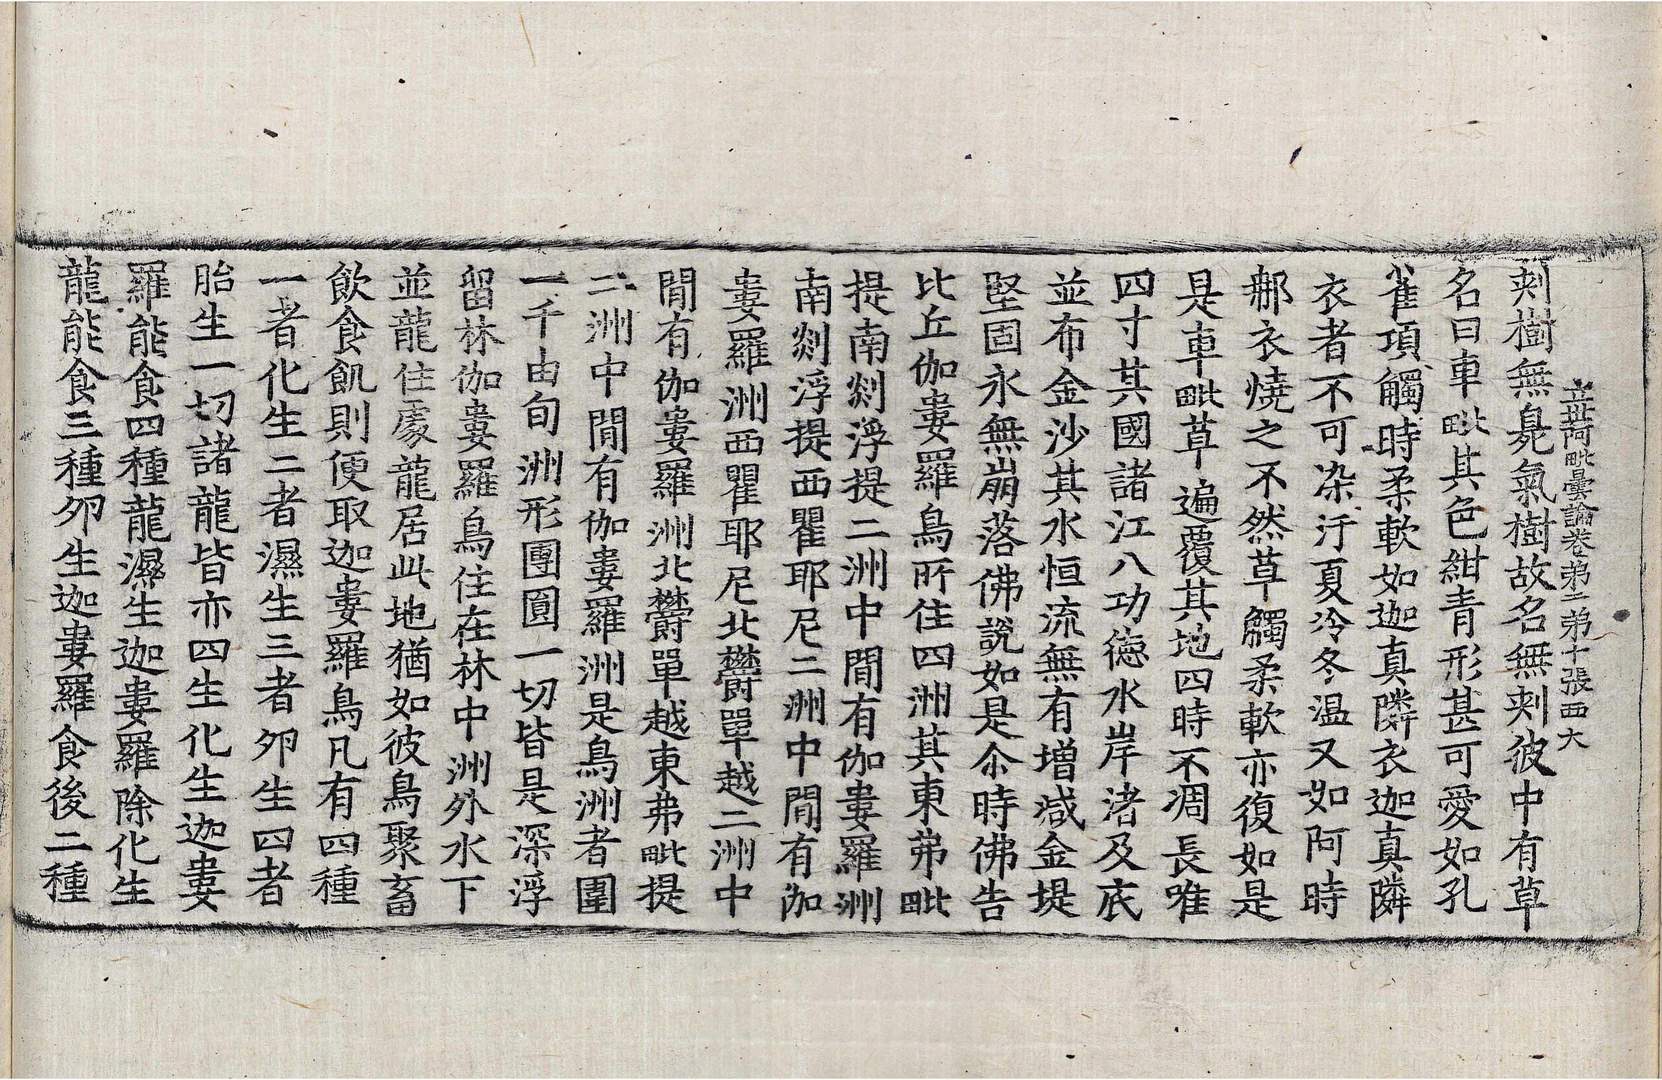 立世阿毗曇論卷苐二苐十張西大
刾樹無臰氣樹故名無刾彼中有草
名曰車毗其色紺青形甚可愛如孔
雀項觸時柔軟如迦真隣衣迦真隣
衣者不可染汙夏冷冬温又如阿時
𨚗衣燒之不然草觸柔軟亦復如是
是車毗草遍覆其地四時不凋長唯
四寸其國諸江八功德水岸渚及底
並布金沙其水恒流無有增減金堤
堅固永無崩落佛說如是尒時佛告
比丘伽婁羅鳥所住四洲其東弗毗
提南剡浮提二洲中間有伽婁羅洲
南剡浮提西瞿耶尼二洲中間有伽
婁羅洲西瞿耶尼北欝單越二洲中
間有伽婁羅洲北欝單越東弗毗提
二洲中間有伽婁羅洲是鳥洲者圍
一千由旬洲形團圓一切皆是深浮
留林伽婁羅鳥住在林中洲外水下
並龍住處龍居此地猶如彼鳥聚畜
飲食飢則便取迦婁羅鳥凡有四種
一者化生二者濕生三者夘生四者
胎生一切諸龍皆亦四生化生迦婁
羅能食四種龍濕生迦婁羅除化生
龍能食三種夘生迦婁羅食後二種